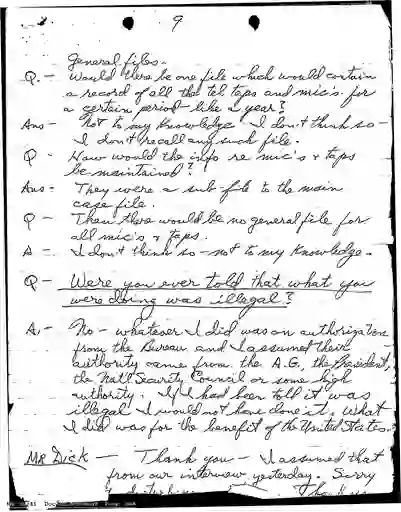 9
General files.
Q. - Would there be one file which would contain
a record of all the tel taps and mic's. for
a certain period - like a year?
Ans - Not to my knowledge I don't think so -
I don't recall any such file.
Q - How would the info re mic's & taps
be maintained?
Ans = They were a sub-file to the main
case file.
Q - Then there would be no general file for
all mic's & taps.
A = I don't think so - not to my knowledge.
Q - Were you ever told that what you
were doing was illegal?
A - No - whatever I did was on authorization
from the Bureau and I assumed their
authority came from the A.G., the President,
the Nat'l Security Council or some high
authority. If I had been told it was
illegal I would not have done it. What
I did was for the benefit of the United States.
MR DICK - Thank you - I assumed that
from our interview yesterday. Sorry